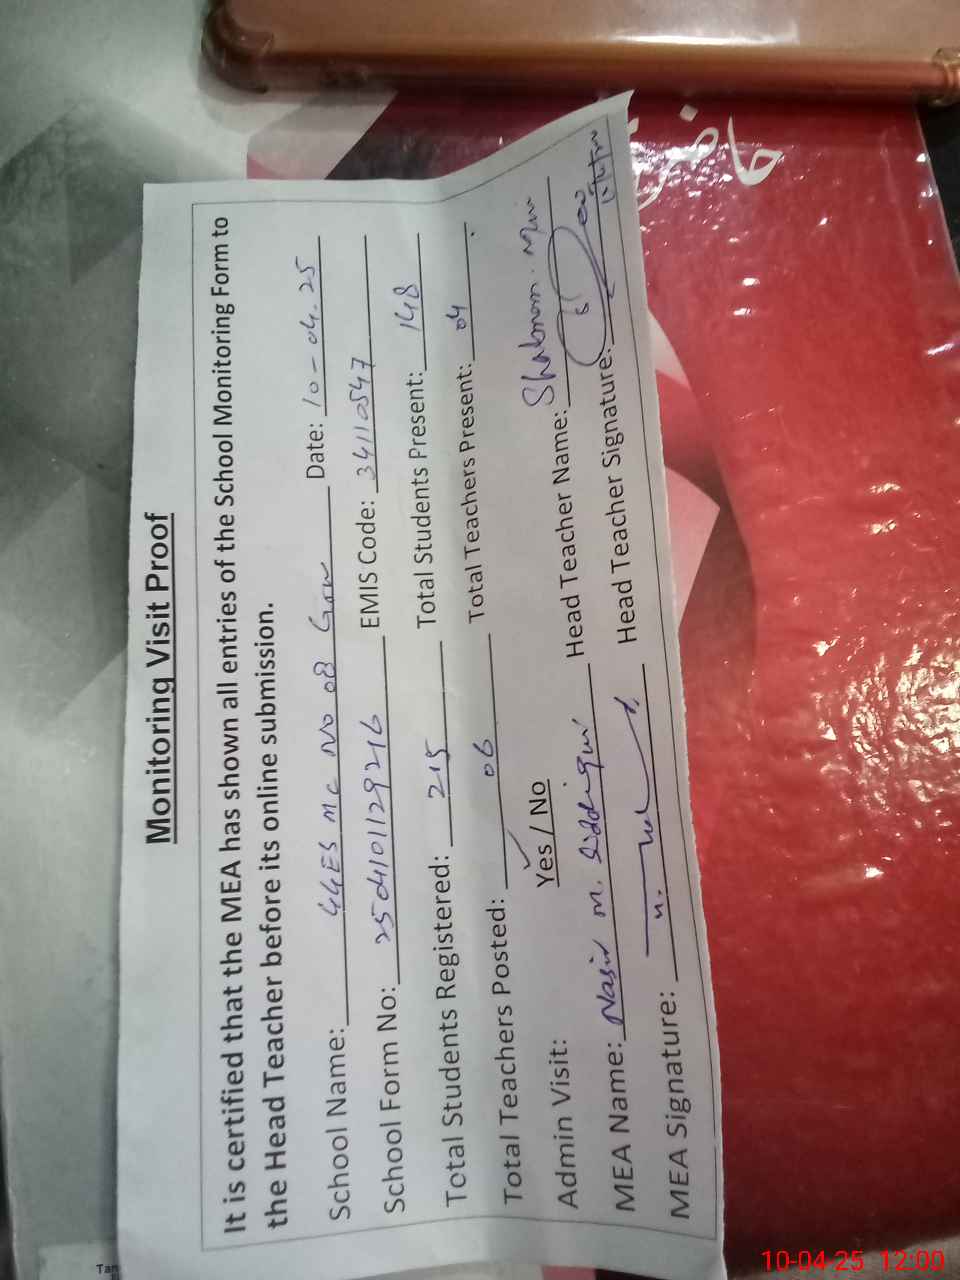 Monitoring Visit Proof
It is certified that the MEA has shown all entries of the School Monitoring Form to
the Head Teacher before its online submission.
School Name: GGES MC No 08 Date: 10-04-25
School Form No: 2504101129216 EMIS Code: 34110547
Total Students Registered: 215 Total Students Present: 148
Total Teachers Posted: 06 Total Teachers Present: 04
Admin Visit: Yes / No
MEA Name: Nasir M. Siddiqui Head Teacher Name: Shabnam
MEA Signature: Head Teacher Signature:
حاضر
Tan
10-04-25 12:00